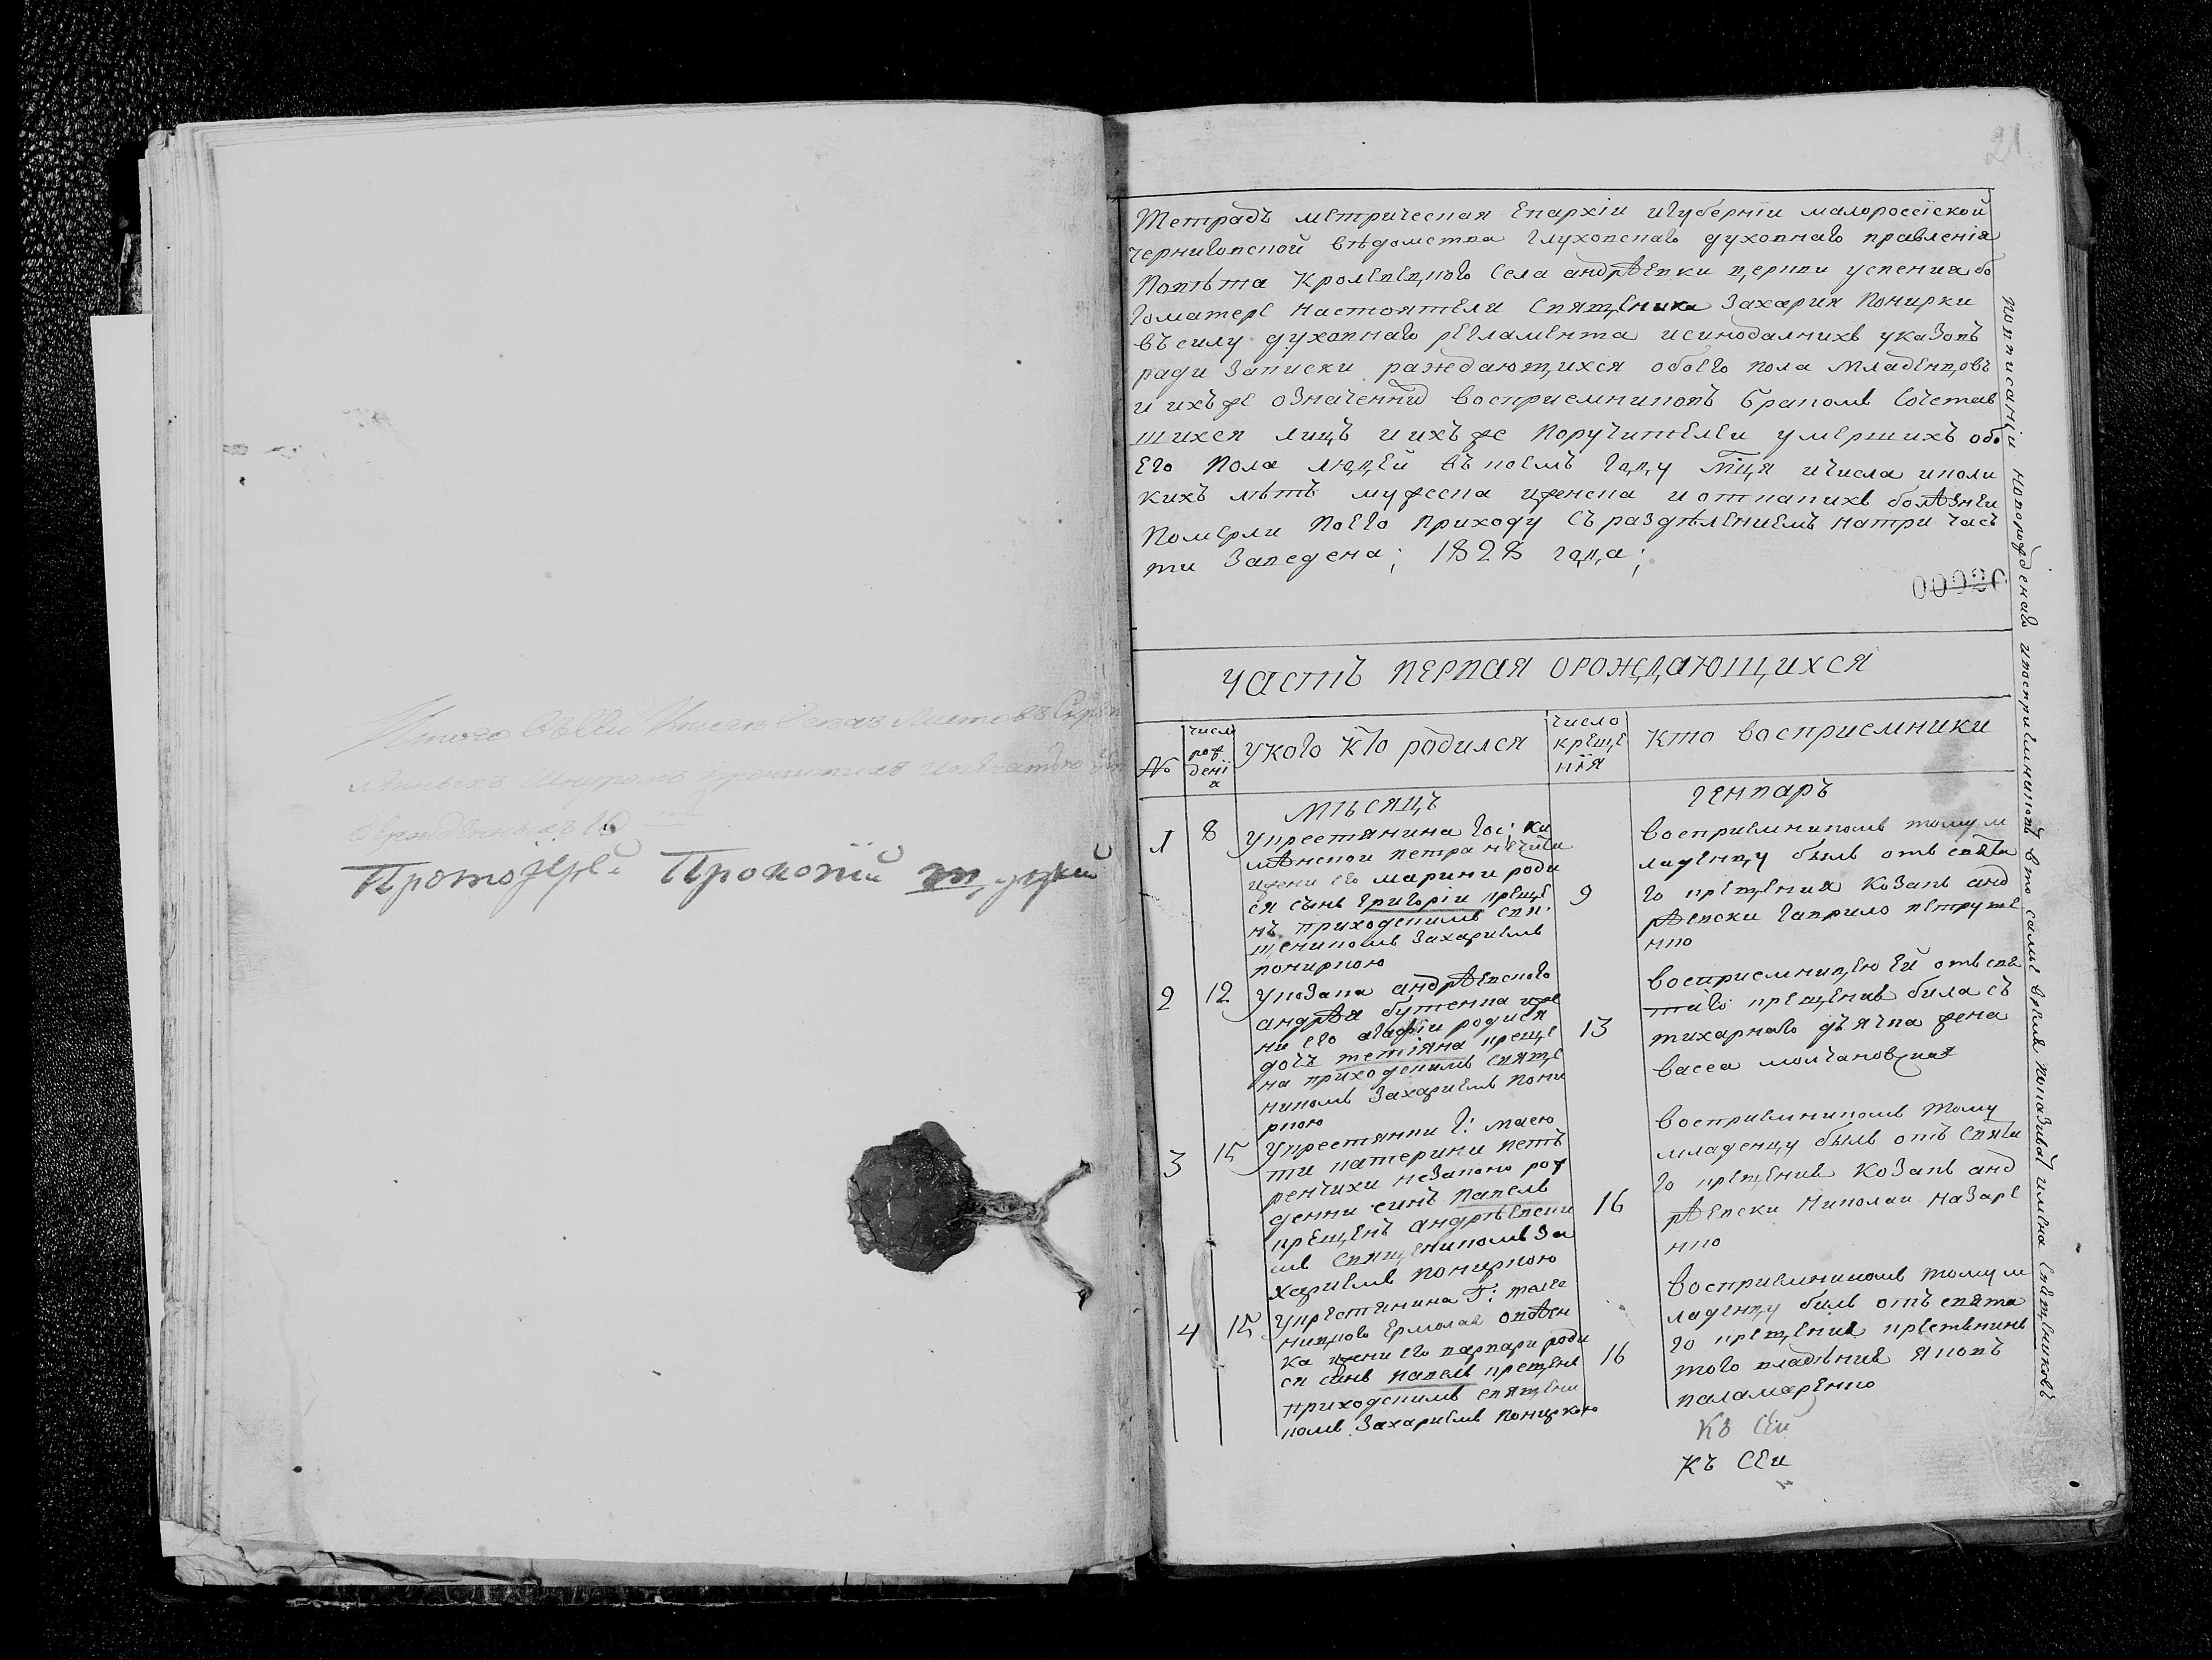 Итого въ сей книгѣ листовъ
шнуромъ
Протоіерей Прокопій
21
Тетрадь метрическая Епархіи игуберніи малороссіской
черниговской вѣдомства глуховскаго духовнаго правленія
Повѣта Кролевецкого Села андрѣевки церкви успения бо
гоматере Настоятели Священика Захария Понирки
въ силу духовнаго регламента исинодалнихъ указовъ
ради Записки раждающихся обоего пола Младенцовъ
и ихъже означенній восприемниковъ бракомъ Сочетав
шихся лицъ и ихъже Поручителеи умершихъ обо
Его Пола людей въ коемъ году мца ичисла иколи
кихъ лѣтъ мужеска иженска и откакихъ болѣзнеи
ПомерлиНоего приходу Съ раздѣлениемъ натри час
ти Заведена; 1828 года;
00020
часть первая орождающихся
№
число
рож
дені
я
укого кто родился
число
креще
нія
кто восприемники
мѣсяцъ
генваръ
1
8
укрестянина гос: ка
мѣнскои петра
ижени его марини роди
ся сынъ григорій креще
нъ приходскимъ свя:
щеникомъ Захариемъ
пониркою
9
восприемникомъ тому м
ладенцу былъ отъ свята
го крещения козакъ анд
рѣевски гаврило петруше
нко
2
12
укозака андрѣевского
андрѣя бутенка иже
ни его агафіи родися
дочъ тетіяна креще
на приходскимъ свяще
никомъ Захариемъ пони
ркою
13
восприемницею ей отъ свя
таго крещения била съ
тихарнаго дьячка жена
васса молчановская
3
15
укрестянки г: маею
ти катерини пет
ренчихи незаконо рож
денни синъ павелъ
крещенъ андрѣевски
мъ Священикомъ За
хариемъ пониркою
16
восприемникомъ тому
младенцу былъ отъ святи
го крещения козакъ анд
рѣевски Николаи назаре
нко
4
15
укрестянина г: маее
вицкого Ермолая
ка жени его варвари роди
ся синъ павелъ крещенъ
приходскимъ священи
комъ Захариемъ пониркою
16
восприемникомъ тому м
ладенцу билъ отъ свята
го крещения крестянинъ
того владѣния яковъ
паламаренко
къ сеи
къ сеи
новорожденаго ивосприемниковъ вто самое время показивал имена священиковъ